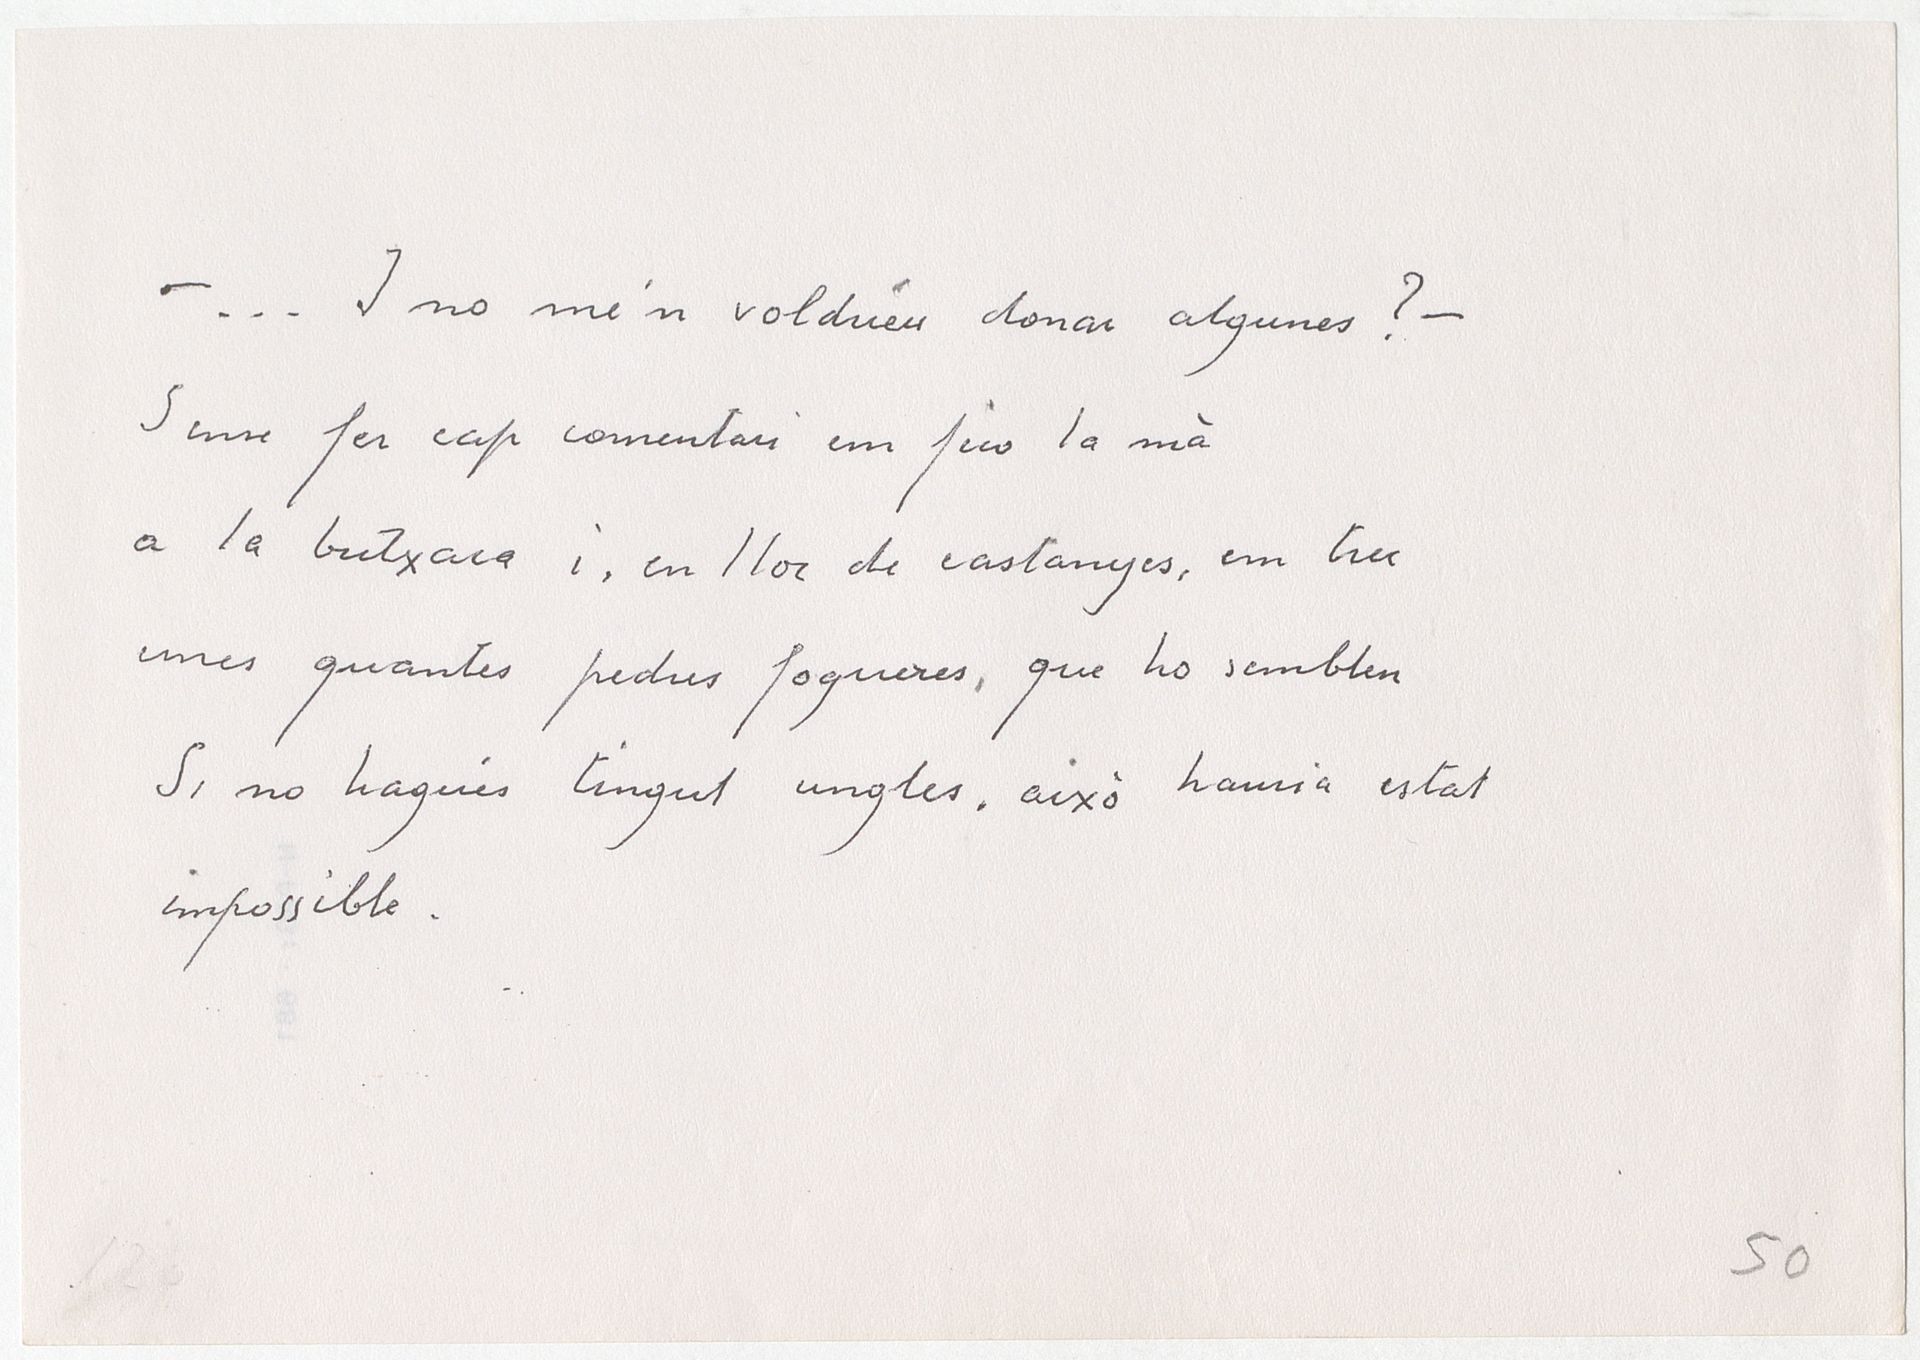 -... I no me'n voldríeu donar algunes?-
Sense fer cap comentari em fico la mà
a la butxaca i, en lloc de castanyes, em trec
unes quantes pedres fogueres, que ho semblen
Si no hagués tingut ungles, això hauria estat
impossible.
50